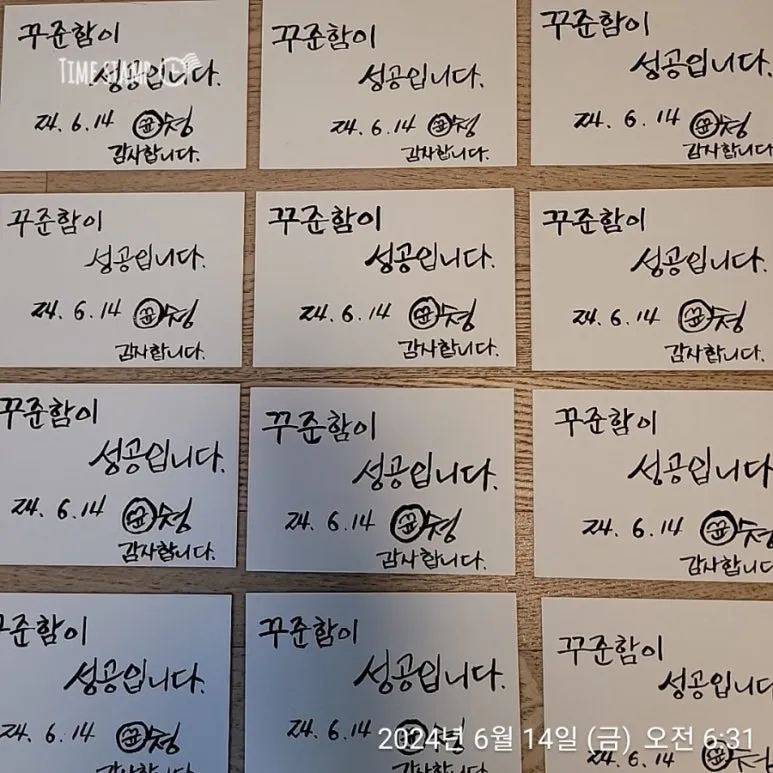 꾸준함이
TIME STAMP
성공입니다.
24. 6. 14
감사합니다.
꾸준함이
성공입니다.
24. 6. 14
감사합니다.
꾸준함이
성공입니다.
24. 6. 14
감사합니다
꾸준함이
성공입니다.
24. 6. 14
감사합니다.
꾸준함이
성공입니다.
24. 6. 14
감사합니다.
꾸준함이
성공입니다.
24. 6. 14
감사합니다.
꾸준함이
성공입니다.
24. 6. 14
감사합니다.
꾸준함이
성공입니다.
24. 6. 14
감사합니다.
꾸준함이
성공입니다
24. 6. 14
감사합니다
꾸준함이
성공입니다.
24. 6. 14
꾸준함이
성공입니다.
24. 6. 14
꾸준함이
성공입니다
24. 6. 14
2024년 6월 14일 (금) 오전 6:31